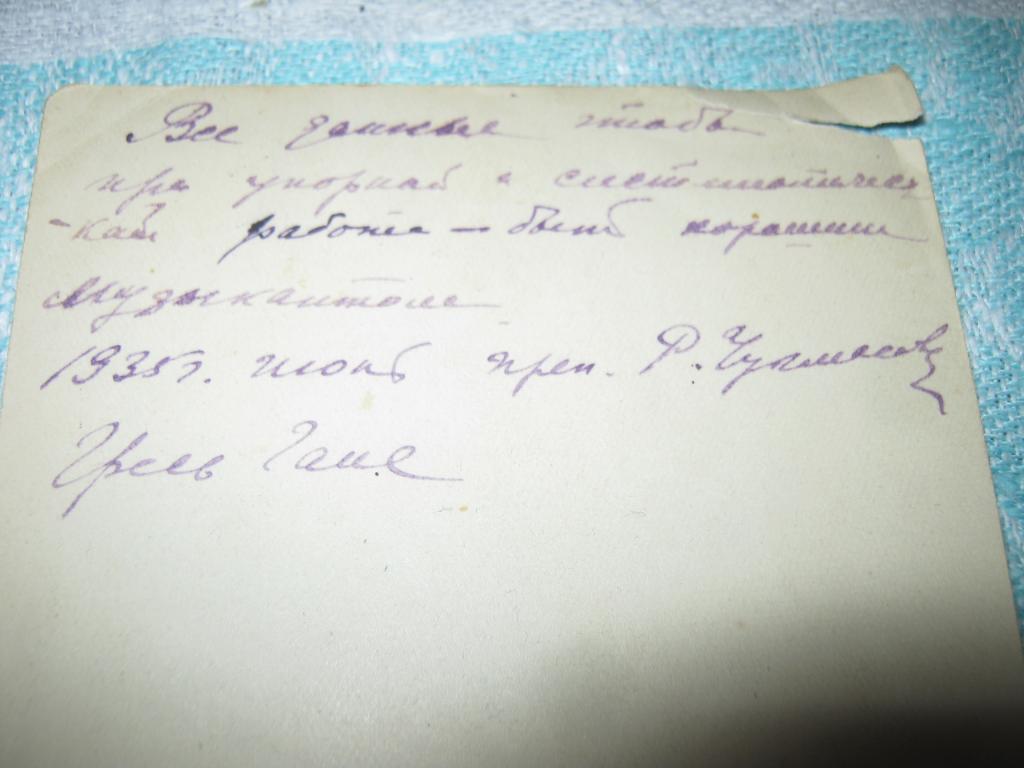 Все данные чтобы
при упорной и систематичес
-кой работе — быть хорошим
музыкантом
1935 г. июнь преп. Р.
Гале